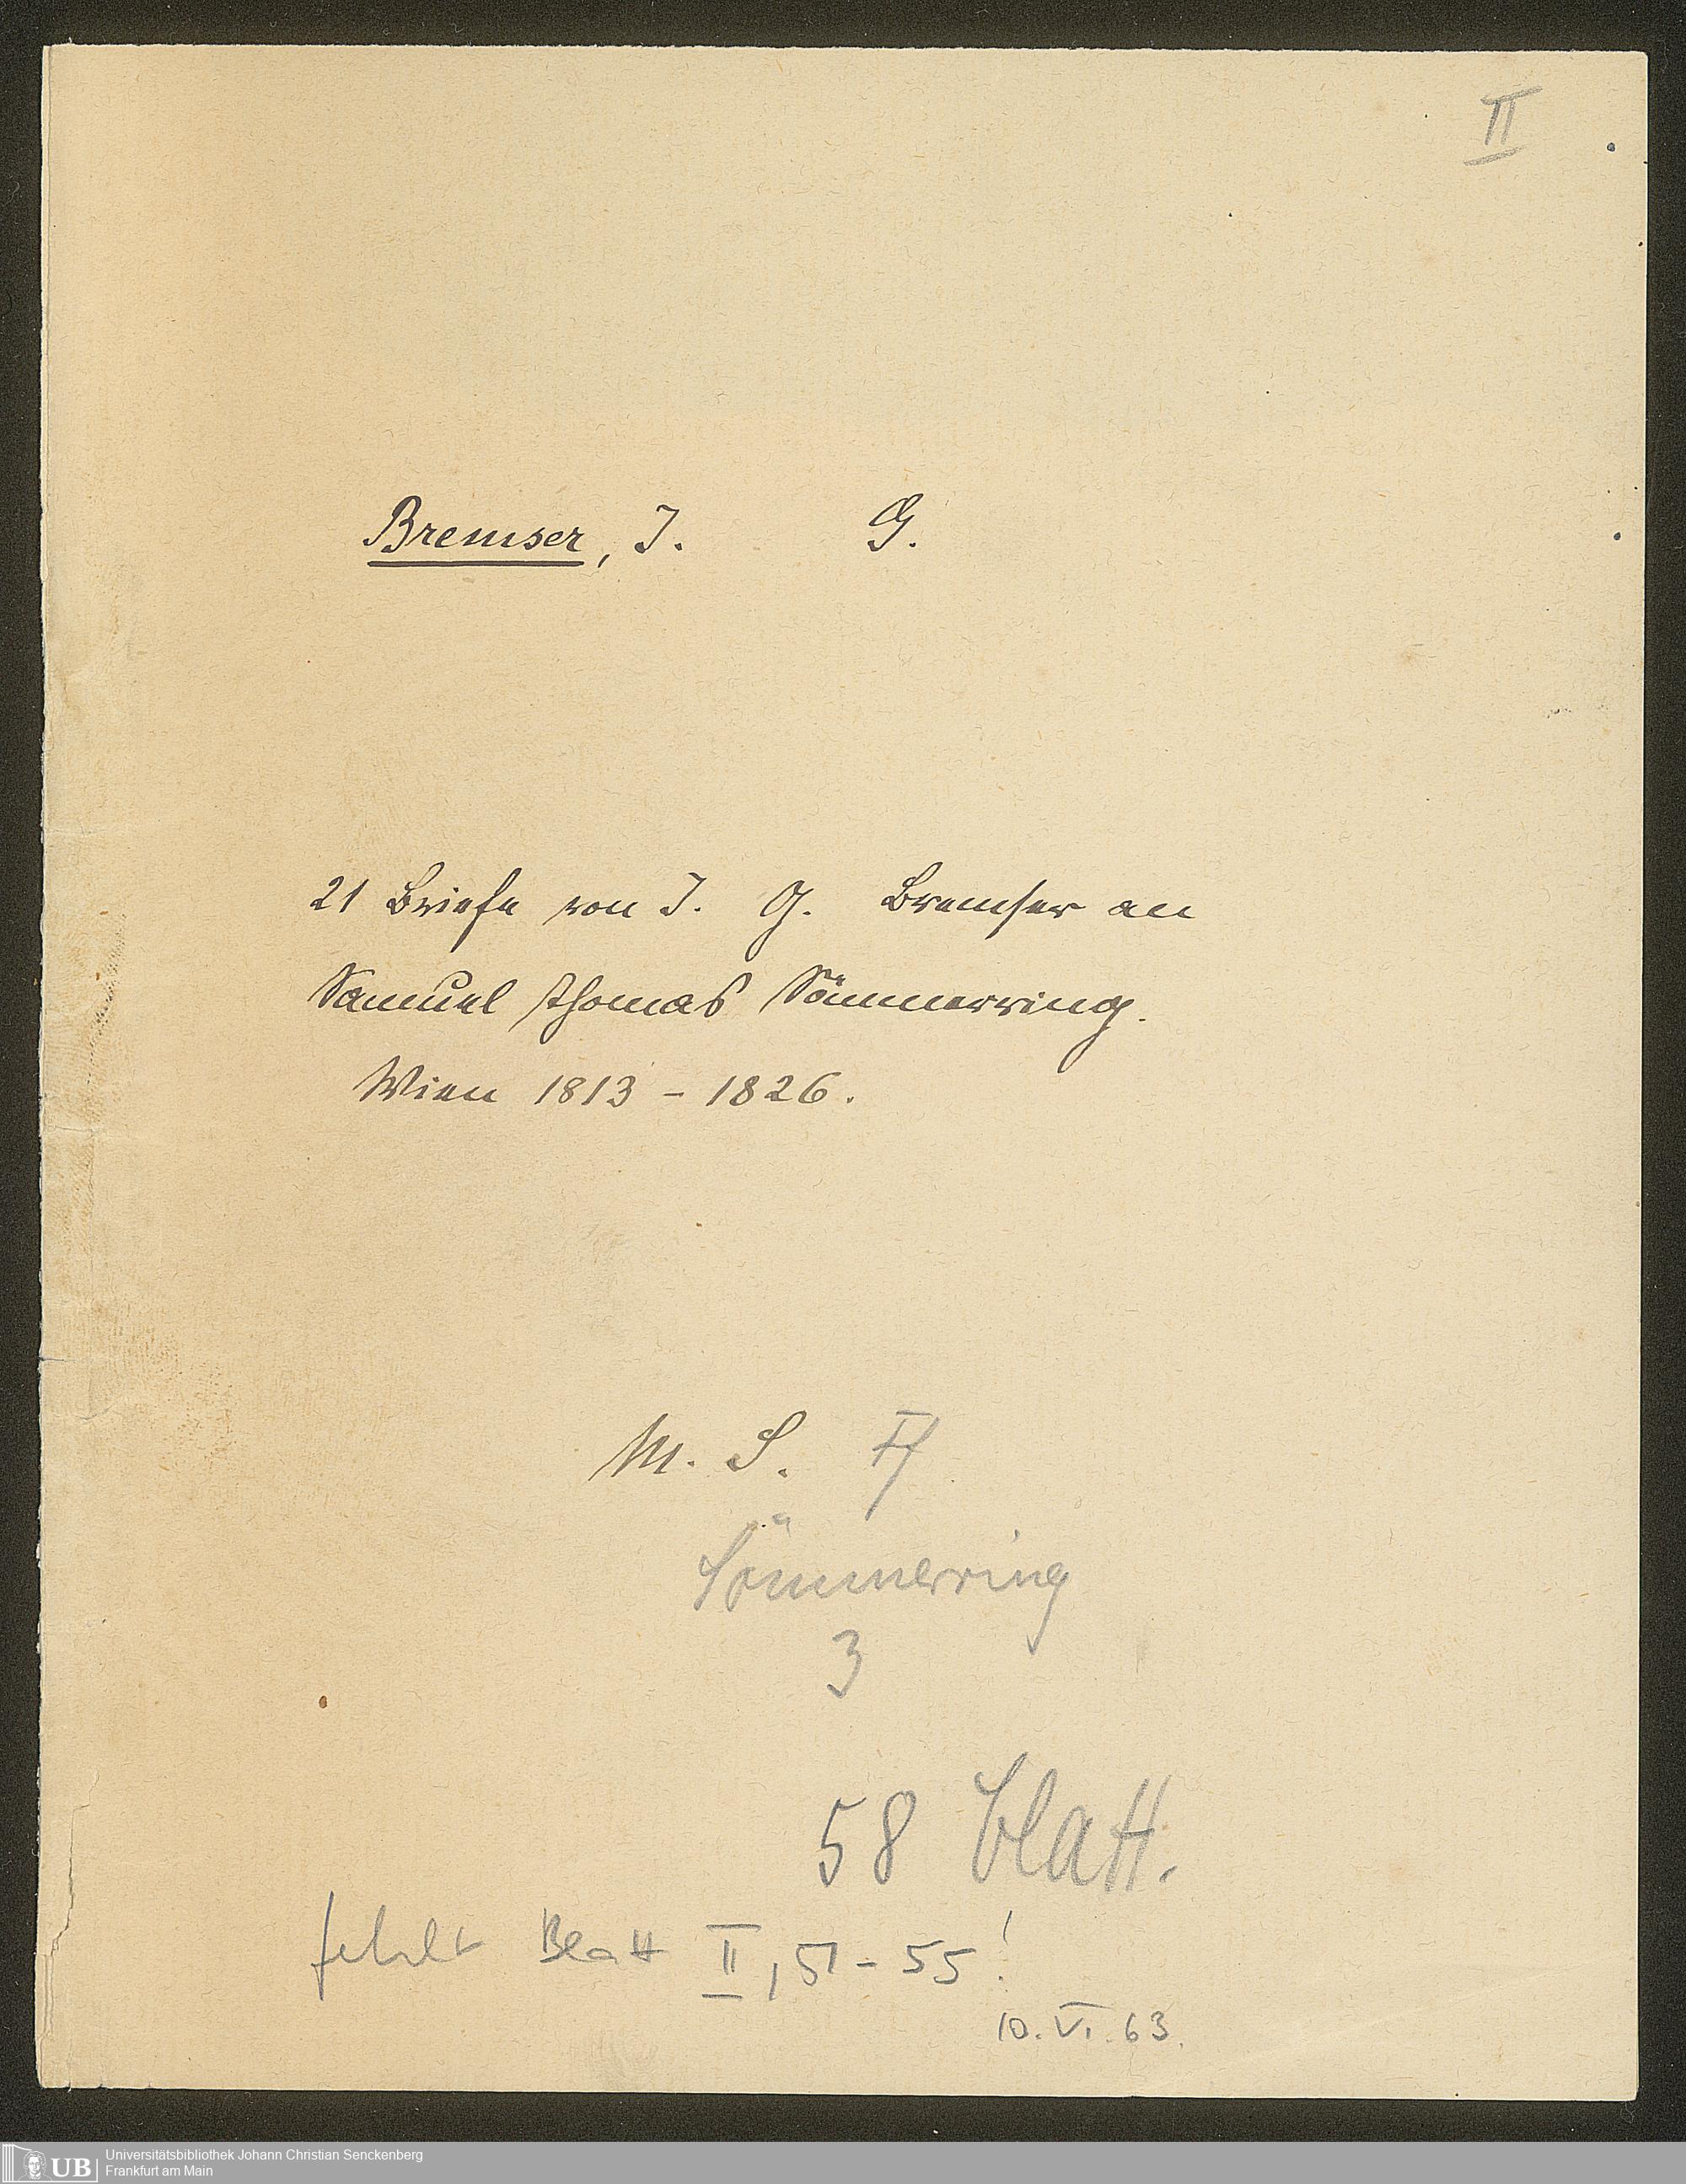 II
Bremser, J. G.
21 Briefe von J. G. Bremser an
Samuel Thomas Sömmerring.
Wien 1813 - 1826.
M. S. Ff
Sömmerring
3
58 blatt.
fehlt Blatt II, 51 - 55!
10. VI. 63.
Universitätsbibliothek Johann Christian Senckenberg
Frankfurt am Main
UB